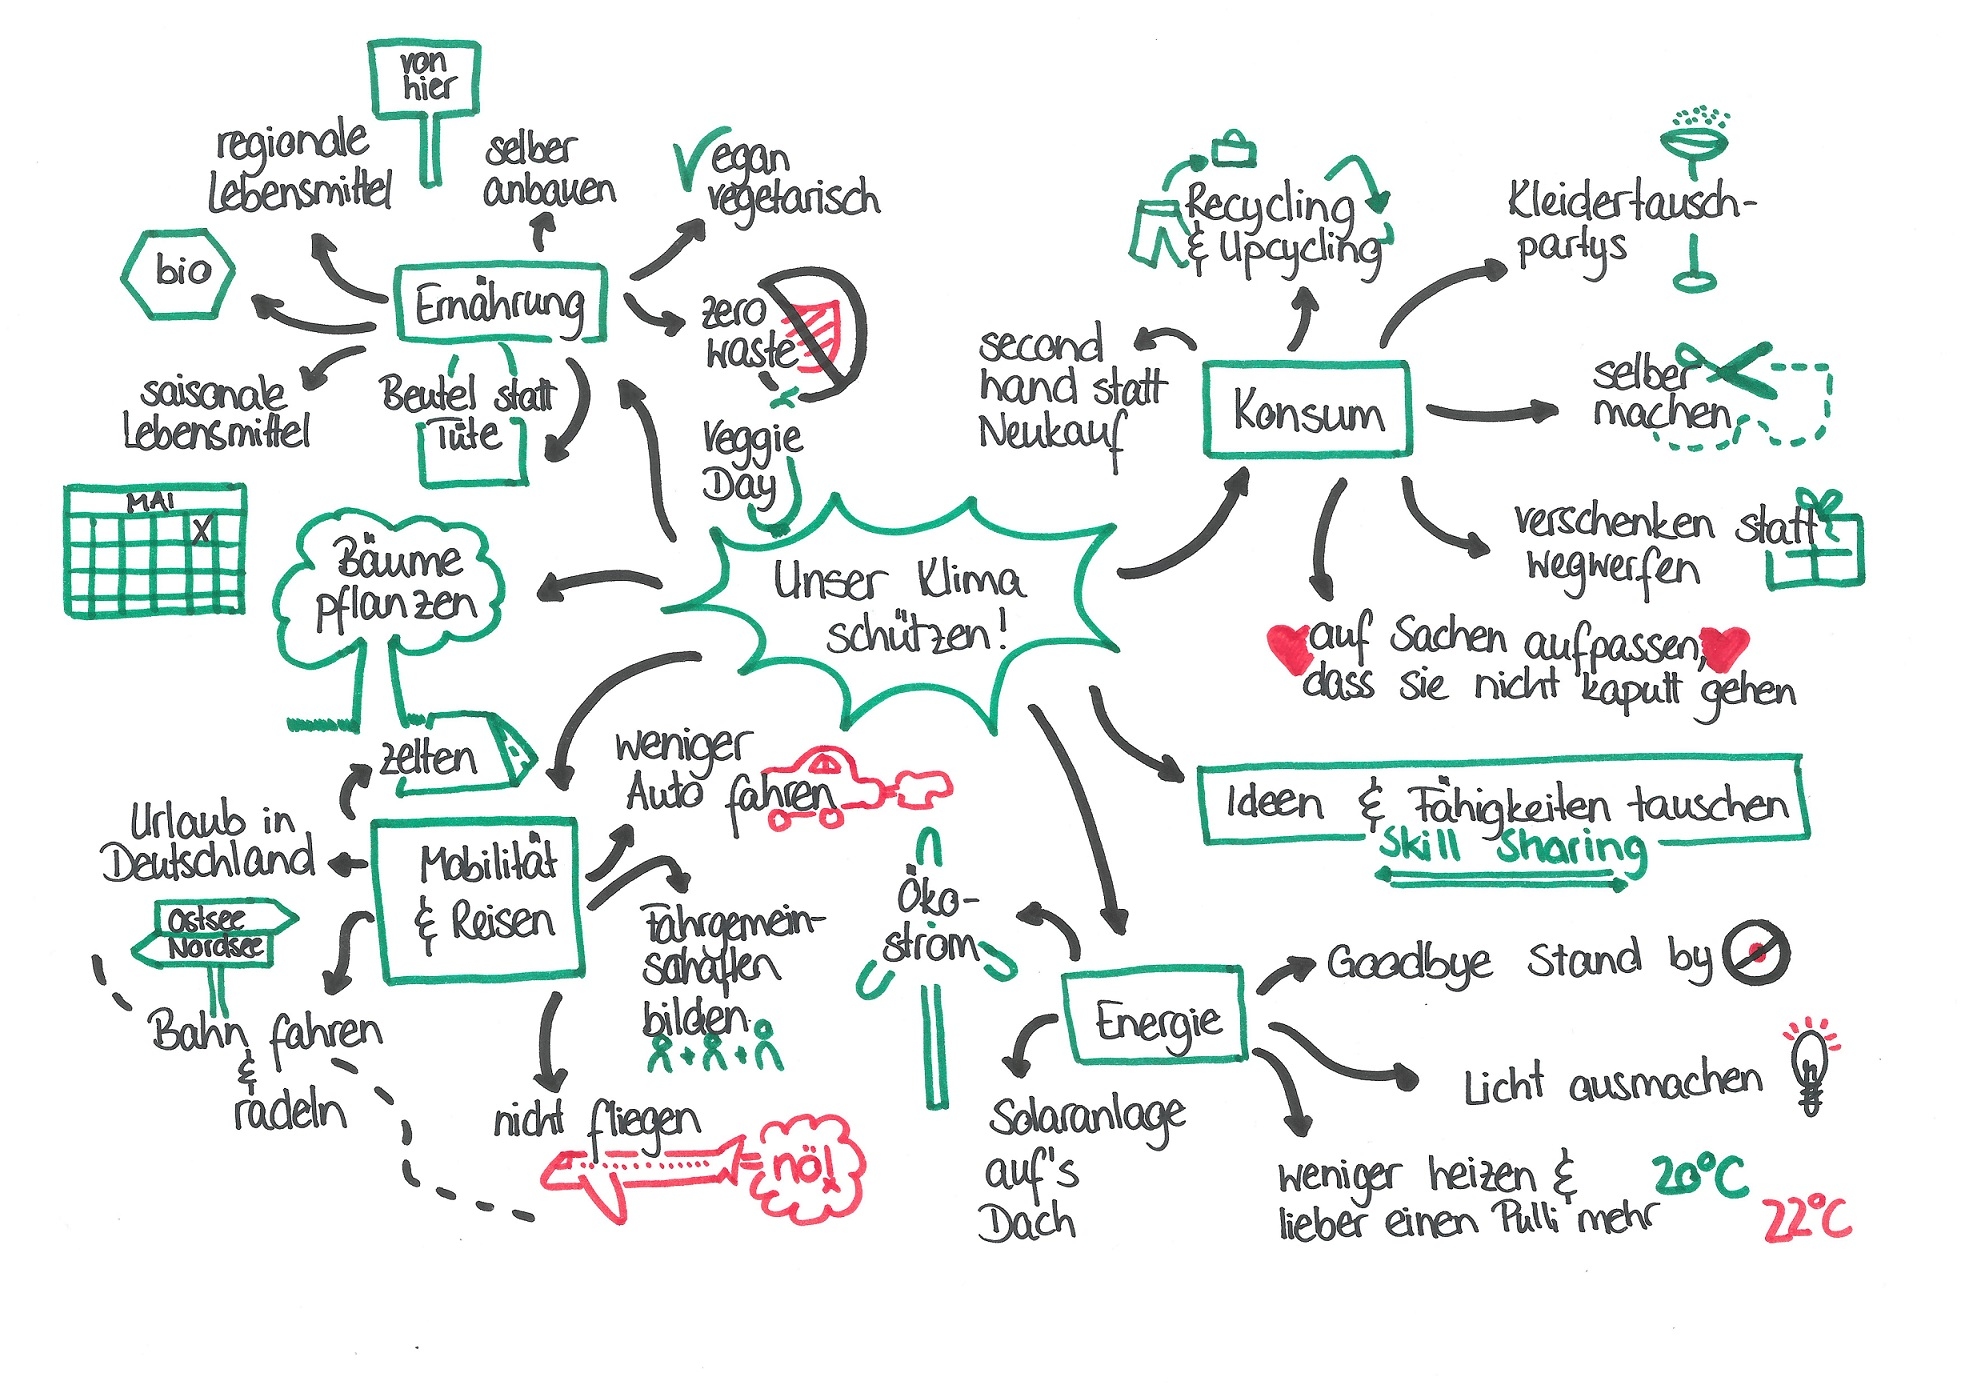 von
hier
regionale
Lebensmittel
selber
anbauen
Vegan
vegetarisch
bio
Ernährung
zero
waste
saisonale
Lebensmittel
Beutel statt
Tüte
Veggie
Day
MAI
X
Bäume
pflanzen
Unser Klima
schützen!
Recycling
& Upcycling
Kleidertausch-
partys
second
hand statt
Neukauf
Konsum
selber
machen
verschenken statt
wegwerfen
auf Sachen aufpassen,
dass sie nicht kaputt gehen
Ideen & Fähigkeiten tauschen
Skill Sharing
zelten
weniger
Auto fahren
Urlaub in
Deutschland
Mobilität
& Reisen
Ostsee
Nordsee
Fahrgemein-
schaften
bilden
+ +
Bahn fahren
&
radeln
nicht fliegen
nö!
Öko-
strom
Energie
Goodbye Stand by
Licht ausmachen
Solaranlage
auf's
Dach
weniger heizen & 20°C
lieber einen Pulli mehr 22°C